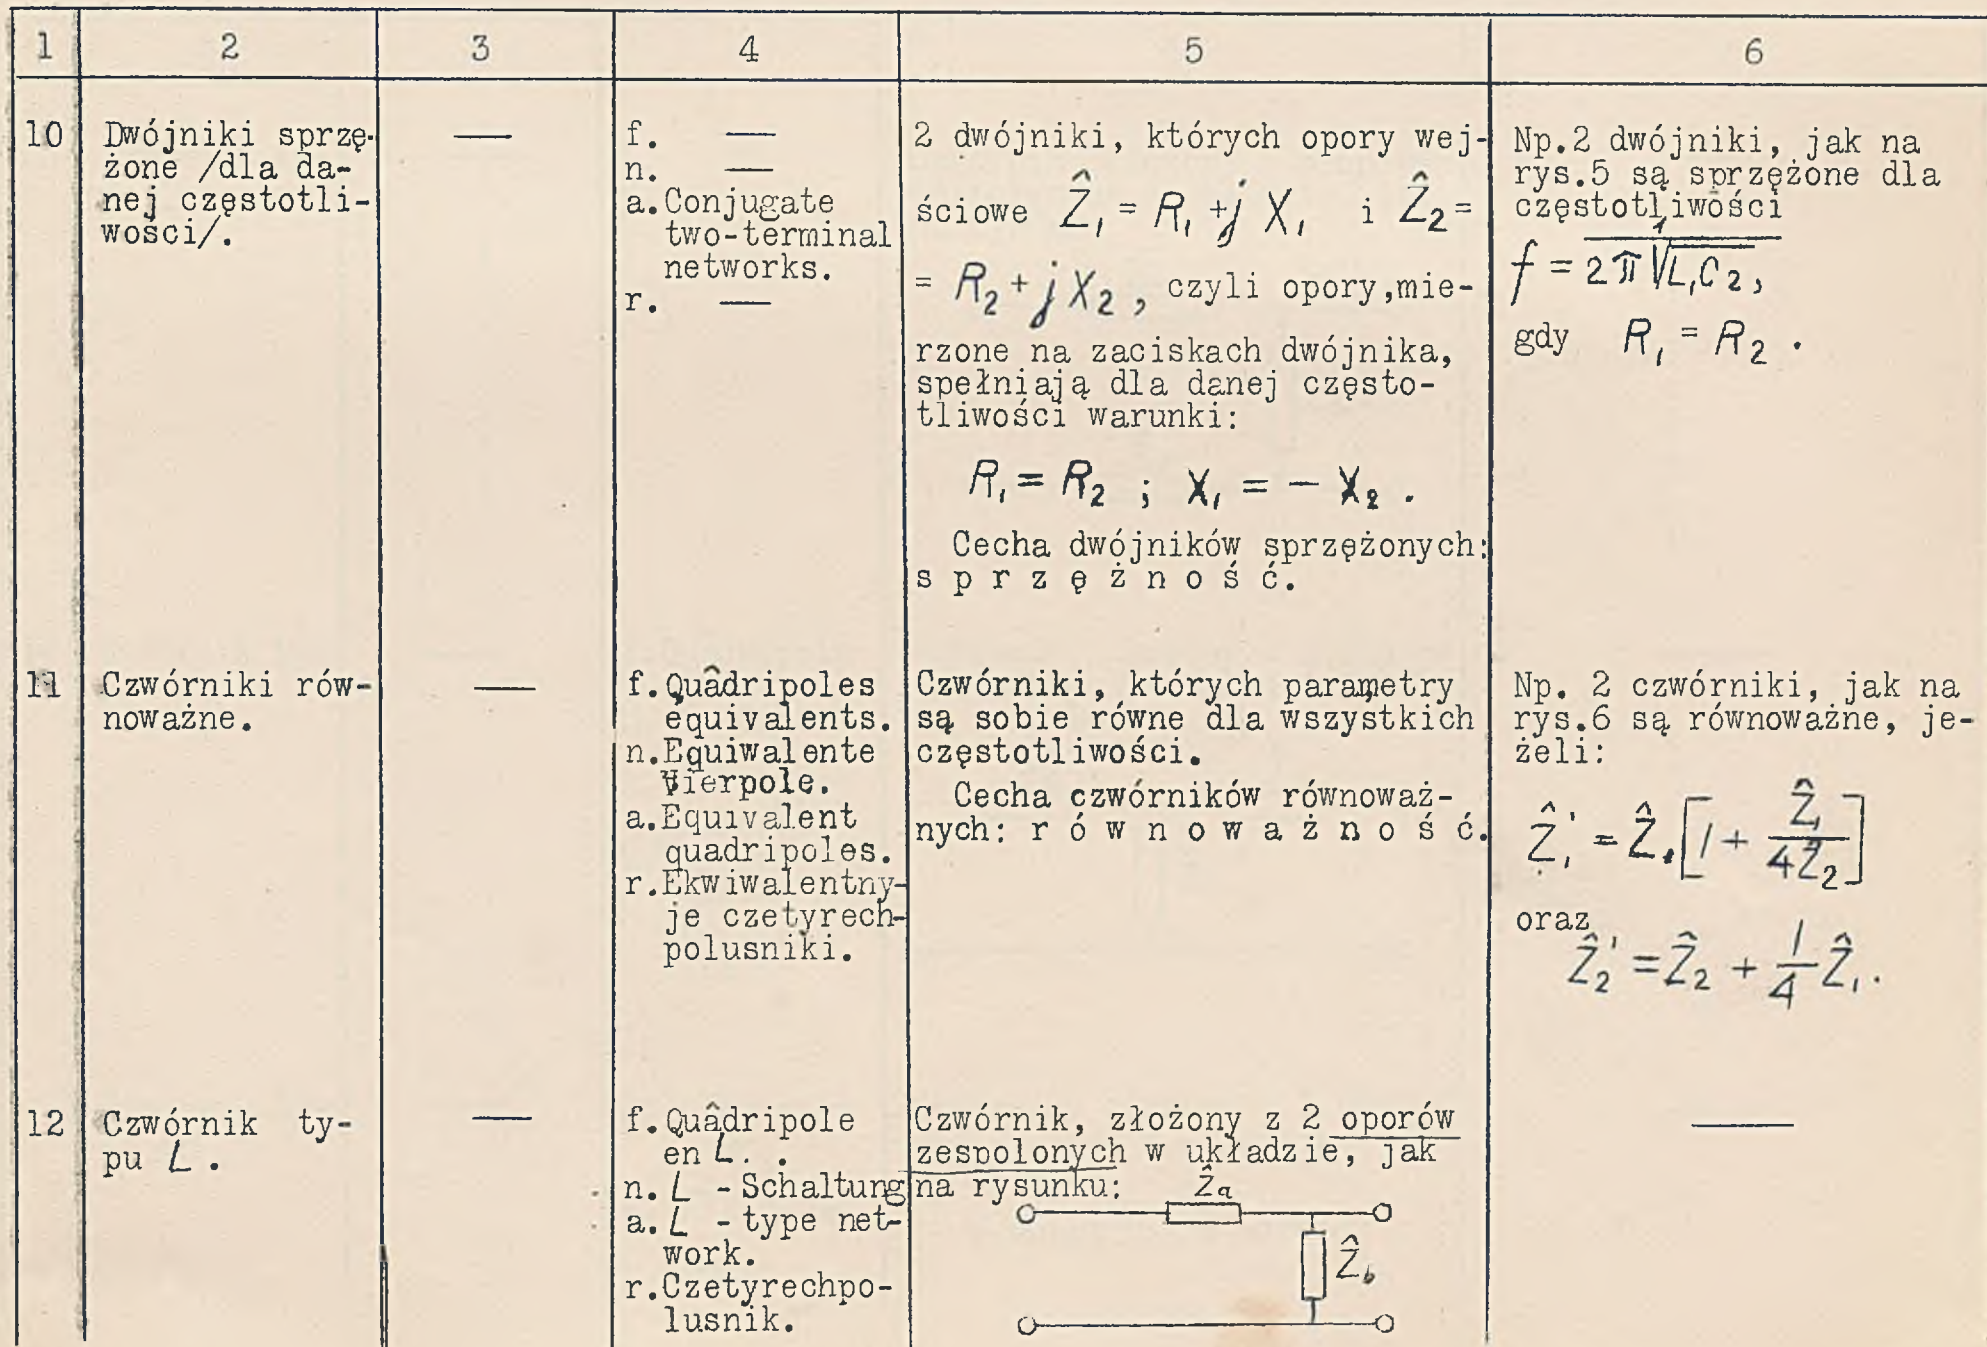 1 2 3 4 5 6
10 Dwójniki sprzę-
żone /dla da-
nej częstotli-
wości/.
—
f. —
n. —
a. Conjugate
two-terminal
networks.
r. —
2 dwójniki, których opory wej-
ściowe Ẑ₁ = R₁ + j X₁ i Ẑ₂ =
= R₂ + j X₂, czyli opory,mie-
rzone na zaciskach dwójnika,
spełniają dla danej często-
tliwości warunki:
R₁ = R₂ ; X₁ = - X₂ .
Cecha dwójników sprzężonych:
s p r z ę ż n o ś ć.
Np.2 dwójniki, jak na
rys.5 są sprzężone dla
częstotliwości
f = 1 / 2π√L₁C₂,
gdy R₁ = R₂ .
11 Czwórniki rów-
noważne.
—
f. Quâdripoles
equivalents.
n. Equiwalente
Vierpole.
a. Equivalent
quadripoles.
r. Ekwiwalentny-
je czetyrech-
polusniki.
Czwórniki, których parametry
są sobie równe dla wszystkich
częstotliwości.
Cecha czwórników równoważ-
nych: r ó w n o w a ż n o ś ć.
Np. 2 czwórniki, jak na
rys.6 są równoważne, je-
żeli:
Ẑ₁' = Ẑ₁ [1 + Ẑ₁ / 4Ẑ₂]
oraz
Ẑ₂' = Ẑ₂ + 1/4 Ẑ₁.
12 Czwórnik ty-
pu L .
—
f. Quâdripole
en L. .
n. L - Schaltung
a. L - type net-
work.
r. Czetyrechpo-
lusnik.
Czwórnik, złożony z 2 oporów
zespolonych w układzie, jak
na rysunku:
Ẑa
Ẑb
—